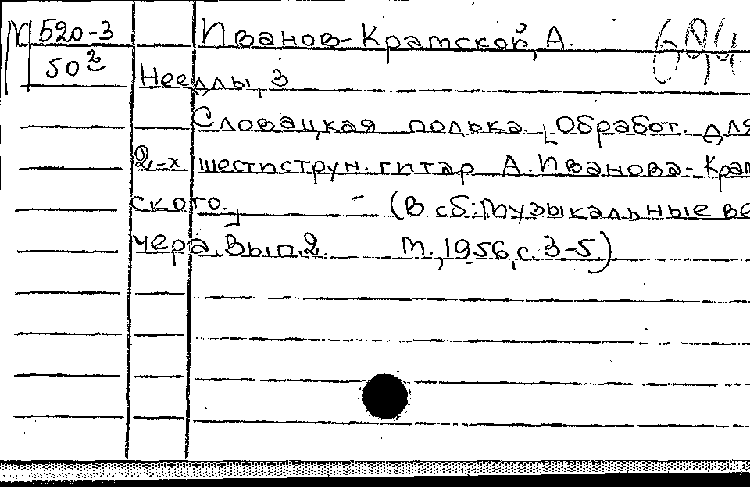 М 520-3 Иванов-Крамской, А. 694
50г Неедлы, З
Словацкая полька [Обработ. для
2-х шестиструн. гитар А.Иванова-Крам
ского] - (В сб: Музыкальные ве
чера. Вып.2 М., 1956, с. 3-5)